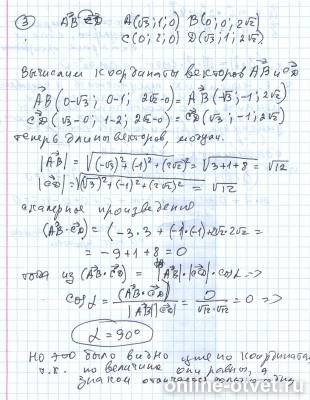 ③ AB CD A(√3; 1; 0) B(0; 0; 2√2)
C(0; 2; 0) D(√3; 1; 2√2)
Вычислим координаты векторов AB и CD
AB (0-√3; 0-1; 2√2-0) = AB(-√3; -1; 2√2)
CD (√3-0; 1-2; 2√2-0) = CD(√3; -1; 2√2)
теперь длины векторов, модули.
|AB| = √((-√3)²+(-1)²+(2√2)²) = √(3+1+8) = √12
|CD| = √((√3)²+(-1)²+(2√2)²) = √12
скалярное произведение
(AB·CD) = (-3·3+(-1)(-1)+2√2·2√2 =
= -9+1+8=0
тогда из (AB·CD) = |AB|·|CD|·cosα =>
cosα = (AB·CD) / |AB||CD| = 0 / √12·√12 = 0 =>
α = 90°
Но это было видно уже по координатам
т.к. по величине они равны, а
знаком отличается только
online-otvet.ru